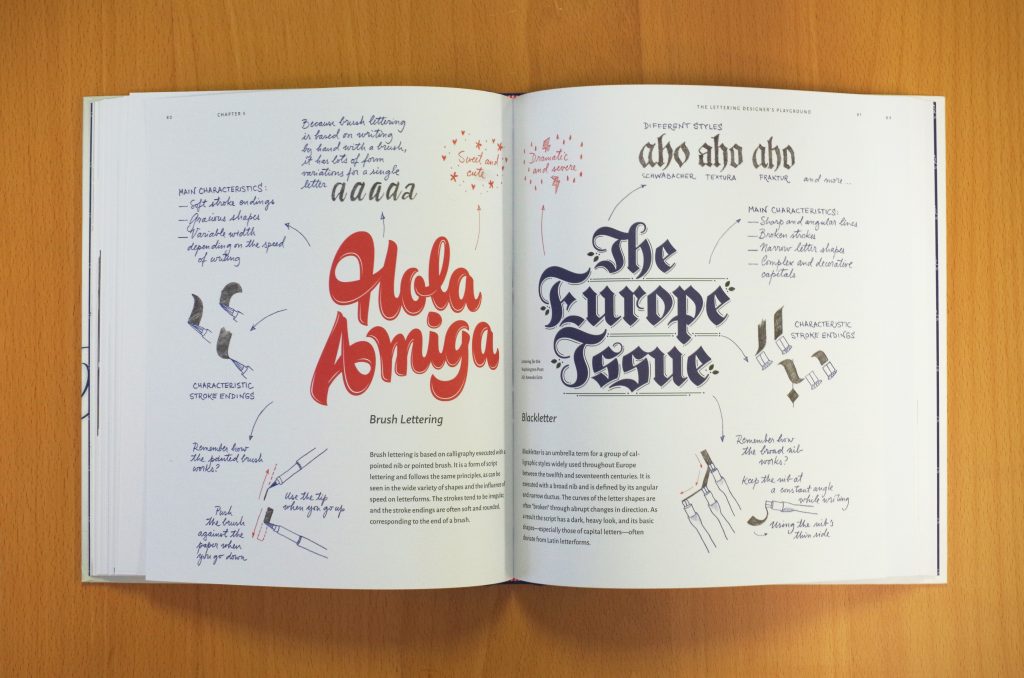 80
CHAPTER 5
Because brush lettering
is based on writing
by hand with a brush,
it has lots of form
variations for a single
letter
aaaaa
Sweet and
cute
MAIN CHARACTERISTICS:
— Soft stroke endings
— Gracious shapes
— Variable width
depending on the speed
of writing
Hola
Amiga
CHARACTERISTIC
STROKE ENDINGS
Brush Lettering
Brush lettering is based on calligraphy executed with a
pointed nib or pointed brush. It is a form of script
lettering and follows the same principles, as can be
seen in the wide variety of shapes and the influence of
speed on letterforms. The strokes tend to be irregular,
and the stroke endings are often soft and rounded,
corresponding to the end of a brush.
Remember how
the pointed brush
works?
Use the tip
when you go up
Push
the brush
against the
paper when
you go down
THE LETTERING DESIGNER'S PLAYGROUND
81
Dramatic
and severe
DIFFERENT STYLES
aho aho aho
SCHWABACHER TEXTURA FRAKTUR and more...
MAIN CHARACTERISTICS:
— Sharp and angular lines
— Broken strokes
— Narrow letter shapes
— Complex and decorative
capitals
The
Europe
Issue
Lettering for the
Washington Post.
AD:
CHARACTERISTIC
STROKE ENDINGS
Blackletter
Blackletter is an umbrella term for a group of cal-
ligraphic styles widely used throughout Europe
between the twelfth and seventeenth centuries. It is
executed with a broad nib and is defined by its angular
and narrow ductus. The curves of the letter shapes are
often "broken" through abrupt changes in direction. As
a result the script has a dark, heavy look, and its basic
shapes—especially those of capital letters—often
deviate from Latin letterforms.
Remember how
the broad nib
works?
Keep the nib at
a constant angle
while writing
Using the nib's
thin side